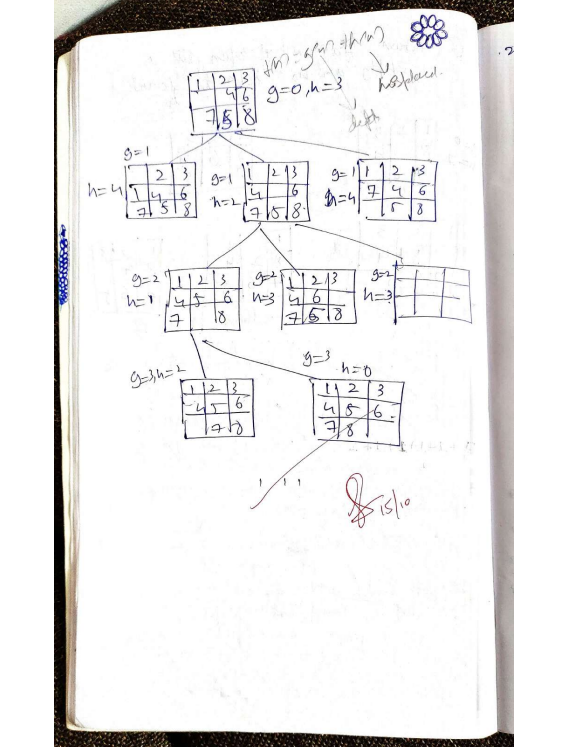 f(n) = g(n) + h(n)
Misplaced.
depth
1 2 3
4 6
7 5 8
g=0, h=3
g=1
h=4
2 3
1 4 6
7 5 8
g=1
h=2
1 2 3
4 6
7 5 8
g=1
h=4
1 2 3
7 4 6
5 8
g=2
h=1
1 2 3
4 5 6
7 8
g=2
h=3
1 2 3
4 6
7 5 8
g=2
h=3
g=3, h=2
1 2 3
4 5 6
7 8
g=3
h=0
1 2 3
4 5 6
7 8
15/10
2